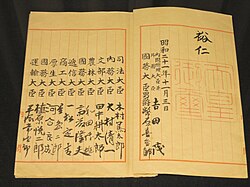 裕仁
昭和二十一年十一月三日
内閣総理大臣兼
外務大臣
吉田茂
国務大臣 男爵幣原喜重郎
司法大臣 木村篤太郎
内務大臣 大村清一
文部大臣 田中耕太郎
農林大臣 和田博雄
国務大臣 斎藤隆夫
逓信大臣 一松定吉
商工大臣 星島二郎
厚生大臣 河合良成
国務大臣 植原悦二郎
運輸大臣 平塚常次郎